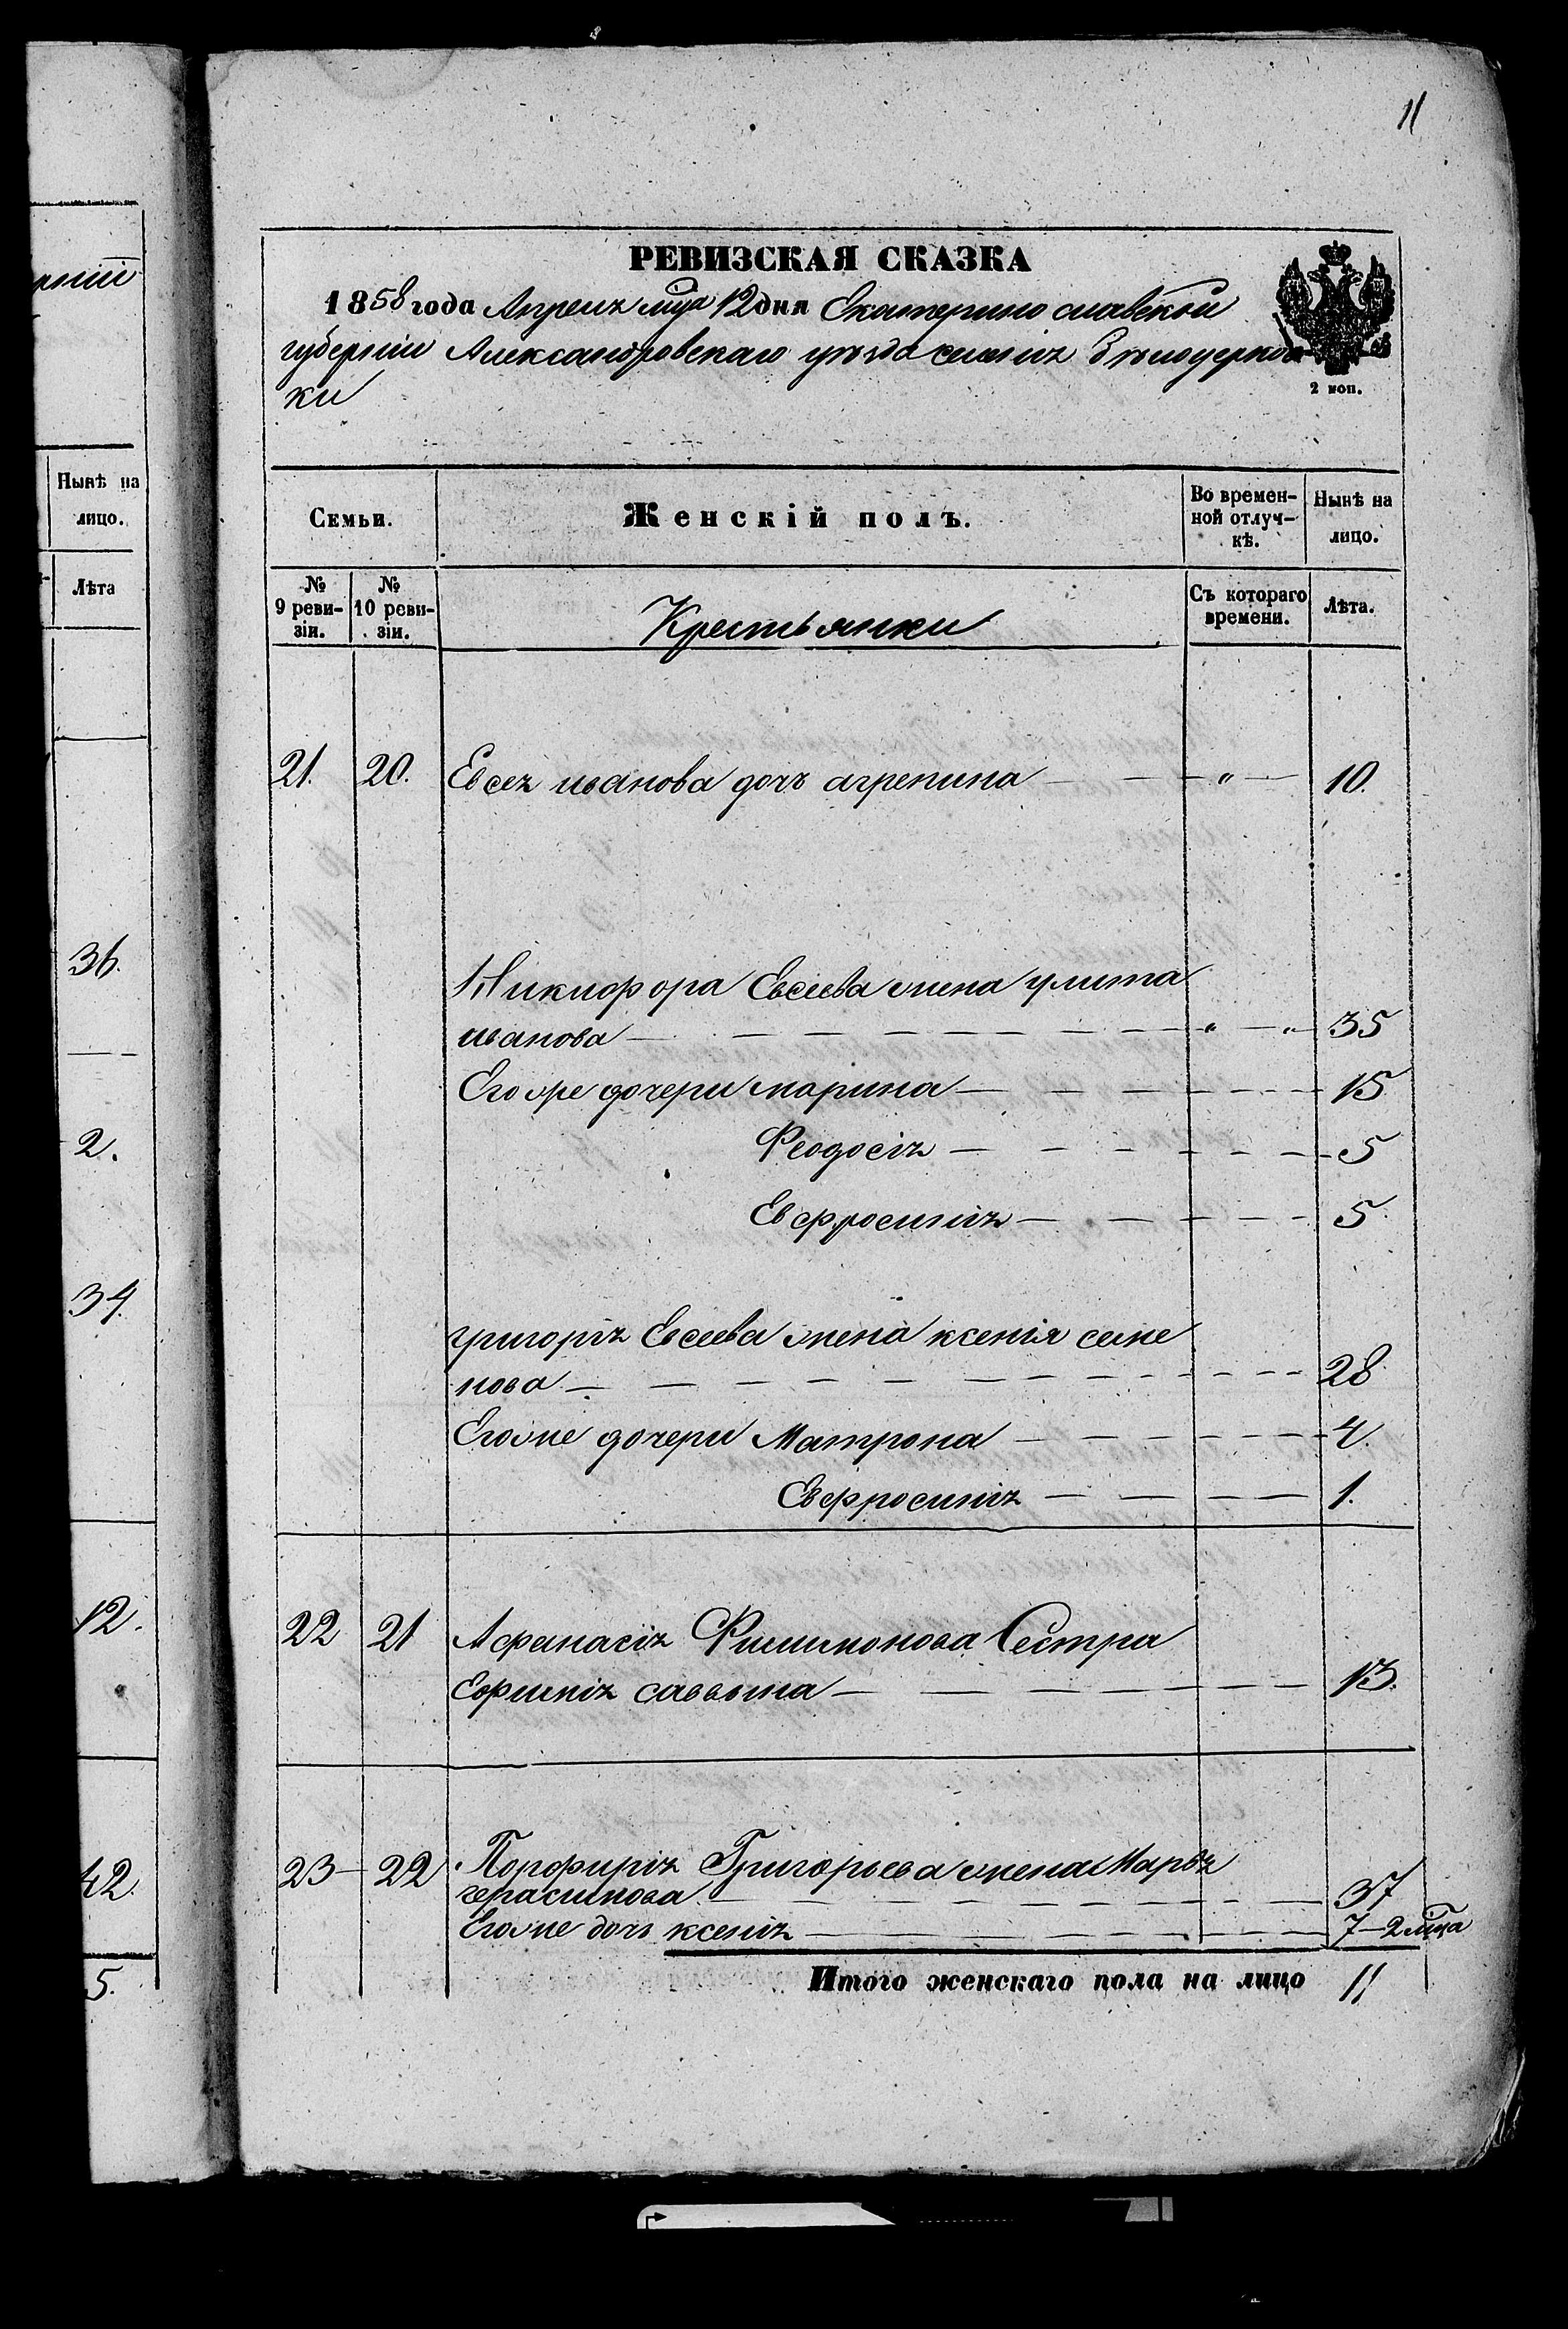 11
РЕВИЗСКАЯ СКАЗКА
1858 года Апреля мца 12 дня Екатерино славской
губерніи Александровскаго уѣзда селенія Бѣлоцерков
ки
2 коп.
Семьи.
Женскій полъ.
Во времен-
ной отлуч-
кѣ.
Нынѣ на
лицо.
№
9 реви-
зіи.
№
10 реви-
зіи.
Крестьянки
Съ котораго
времени.
Лѣта.
21. 20. Евсея иванова дочь агрепина — — " — 10.
Никифора Евсеева жена улита
иванова — — — — — — — " — " 35
Его же дочери марина — — — — — — 15
Феодосія — — — — — — 5
Евфросинія — — — — — 5.
григорія Евсеева жена ксенія семе
нова — — — — — — — — — — 28
Его же дочери Матрона — — — — — — 4.
Евфросинія — — — — 1.
22 21 Афанасія Филимонова Сестра
Ефимія саввина — — — — — — 13.
23 — 22 Порфирія Григорьева жена Марѳа
герасимова — — — — — — — 37
Его же дочь ксенія — — — — — — 7 — 2 мца
Итого женскаго пола на лицо 11
Нынѣ на
лицо.
Лѣта
36.
2.
34.
12.
42.
5.